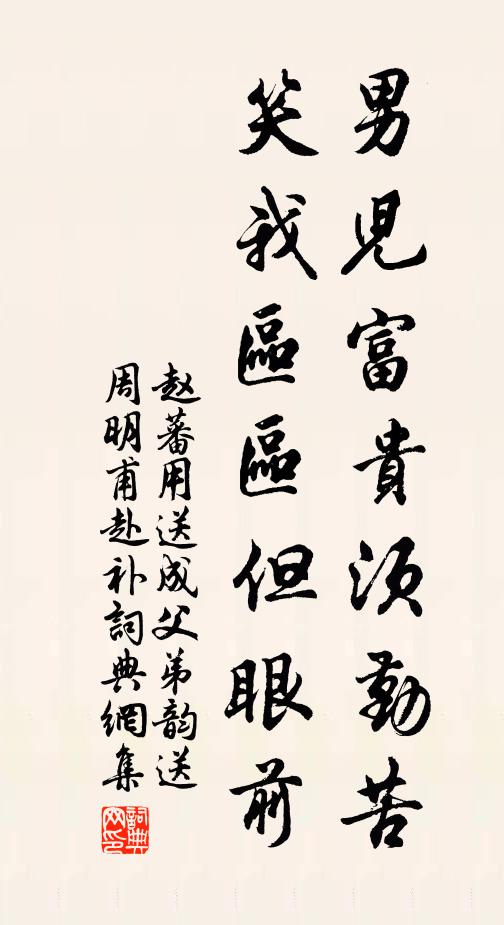 男兒富貴須勤苦
笑我區區但眼前
赵蕃用送成父弟韵送
周明甫赴补詞典網集
詞典
网印